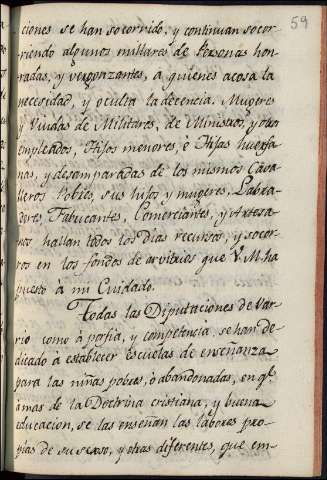 59
ciones se han socorrido, y continuan socor-
riendo algunos millares de Personas hon
radas, y vergonzantes, a quienes acosa la
necesidad, y oculta la decencia. Mugeres
y Viudas de Militares, de Ministros, y otros
empleados, Hijos menores, è Hijas huerfa-
nas, y desamparadas de los mismos Cava-
lleros Pobres, sus hijos y mugeres, Labra-
dores, Fabricantes, Comerciantes, y Artesa-
nos hallan todos los dias recursos, y socor-
ros en los fondos de arvitrios que V. M. ha
puesto à mi Cuidado.
Todas las Diputaciones de Var-
rio como à porfia, y competencia, se han de-
dicado à establecer escuelas de enseñanza
para las niñas pobres, ò abandonadas, en qe.
amas de la Doctrina cristiana, y buena
educacion, se las enseñan las labores pro-
pias de su sexso, y otras diferentes, que em-